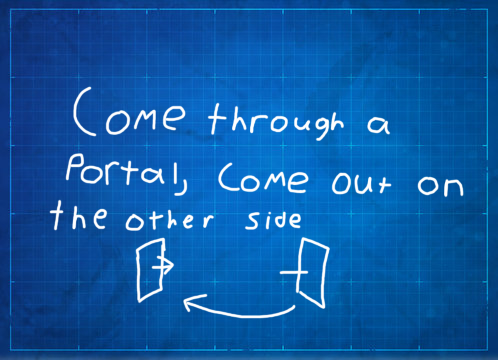 Come through a
Portal, Come out on
the other side